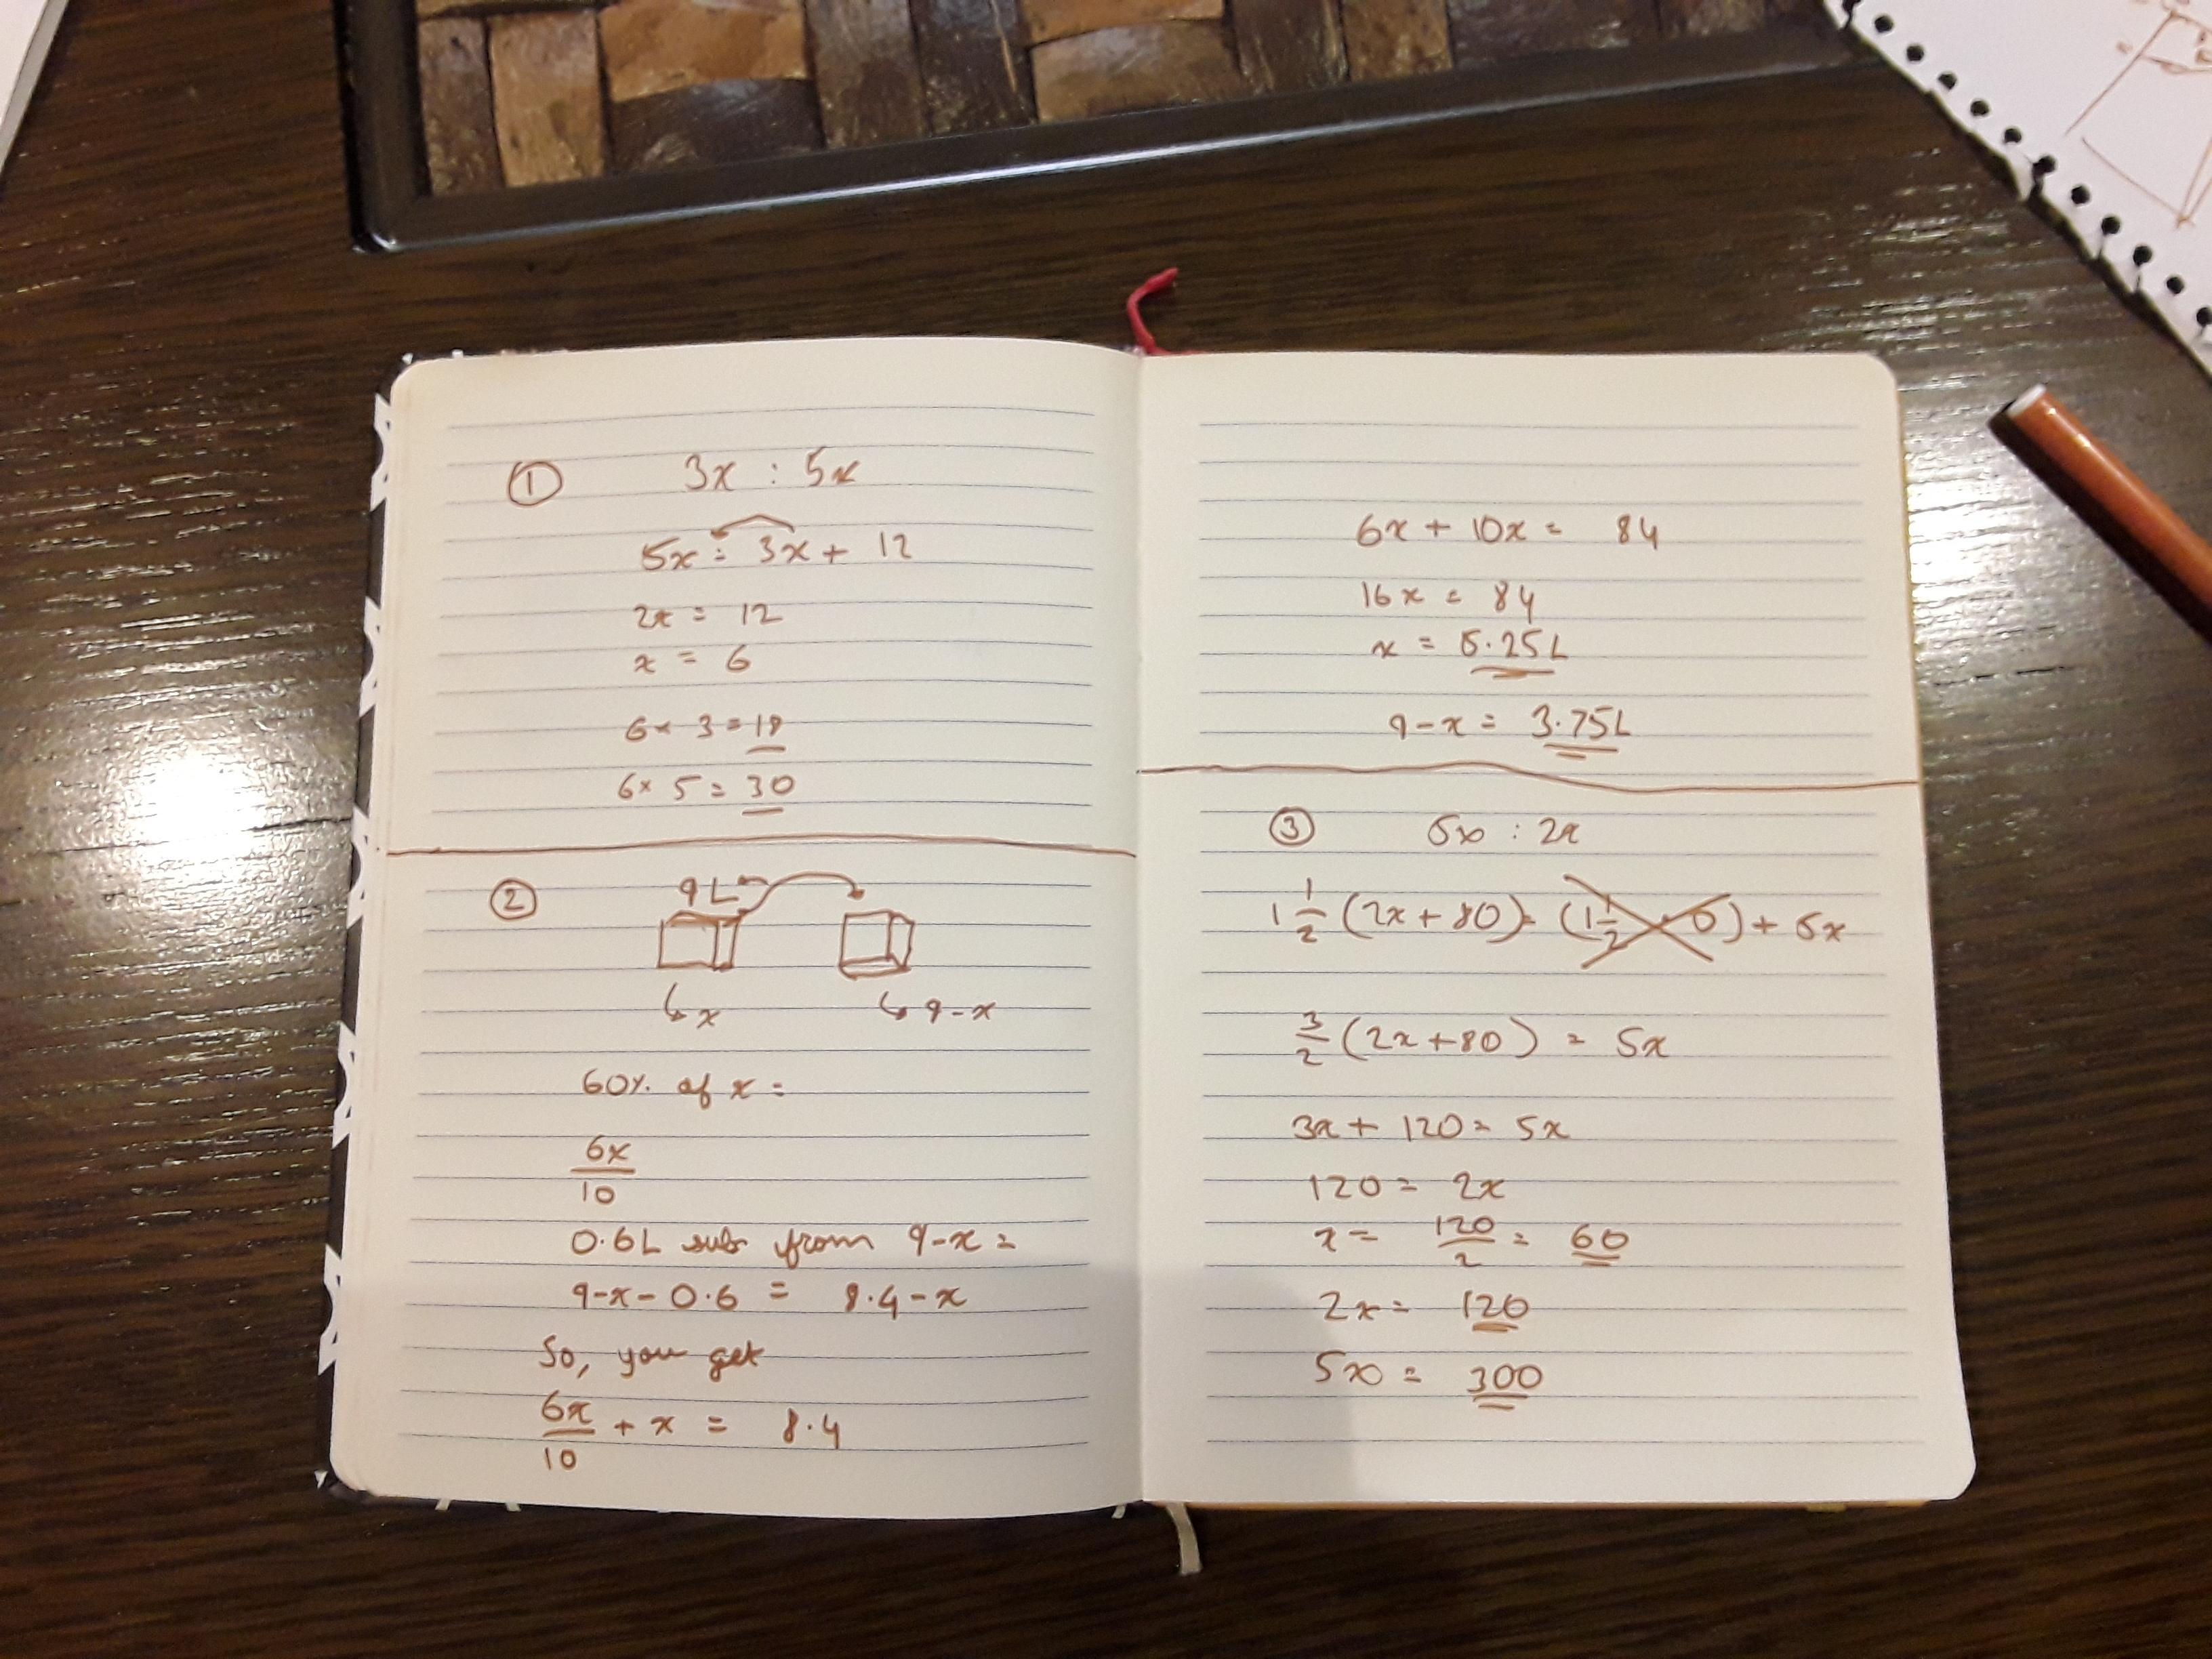 ① 3x : 5x
5x = 3x + 12
2x = 12
x = 6
6 × 3 = 18
6 × 5 = 30
② 9L
x
9-x
60% of x =
6x/10
0.6L sub from 9-x =
9-x-0.6 = 8.4-x
So, you get
6x/10 + x = 8.4
6x + 10x = 84
16x = 84
x = 5.25L
9-x = 3.75L
③ 5x : 2x
1 1/2 (2x + 80) = + 5x
3/2 (2x+80) = 5x
3x + 120 = 5x
120 = 2x
x = 120/2 = 60
2x = 120
5x = 300